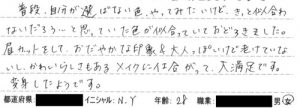 普段、自分が選ばない色、やってみたいけど、きっと似合わ
ないだろう…と思っていた色が似合っていておどろきました。
眉カットをして、おだやかな印象&大人っぽいけど老けていな
い、かわいらしさもあるメイクに仕上がって、大満足です。
変身したようです。
都道府県 イニシャル:N.Y 年齢:28 職業: 男・女